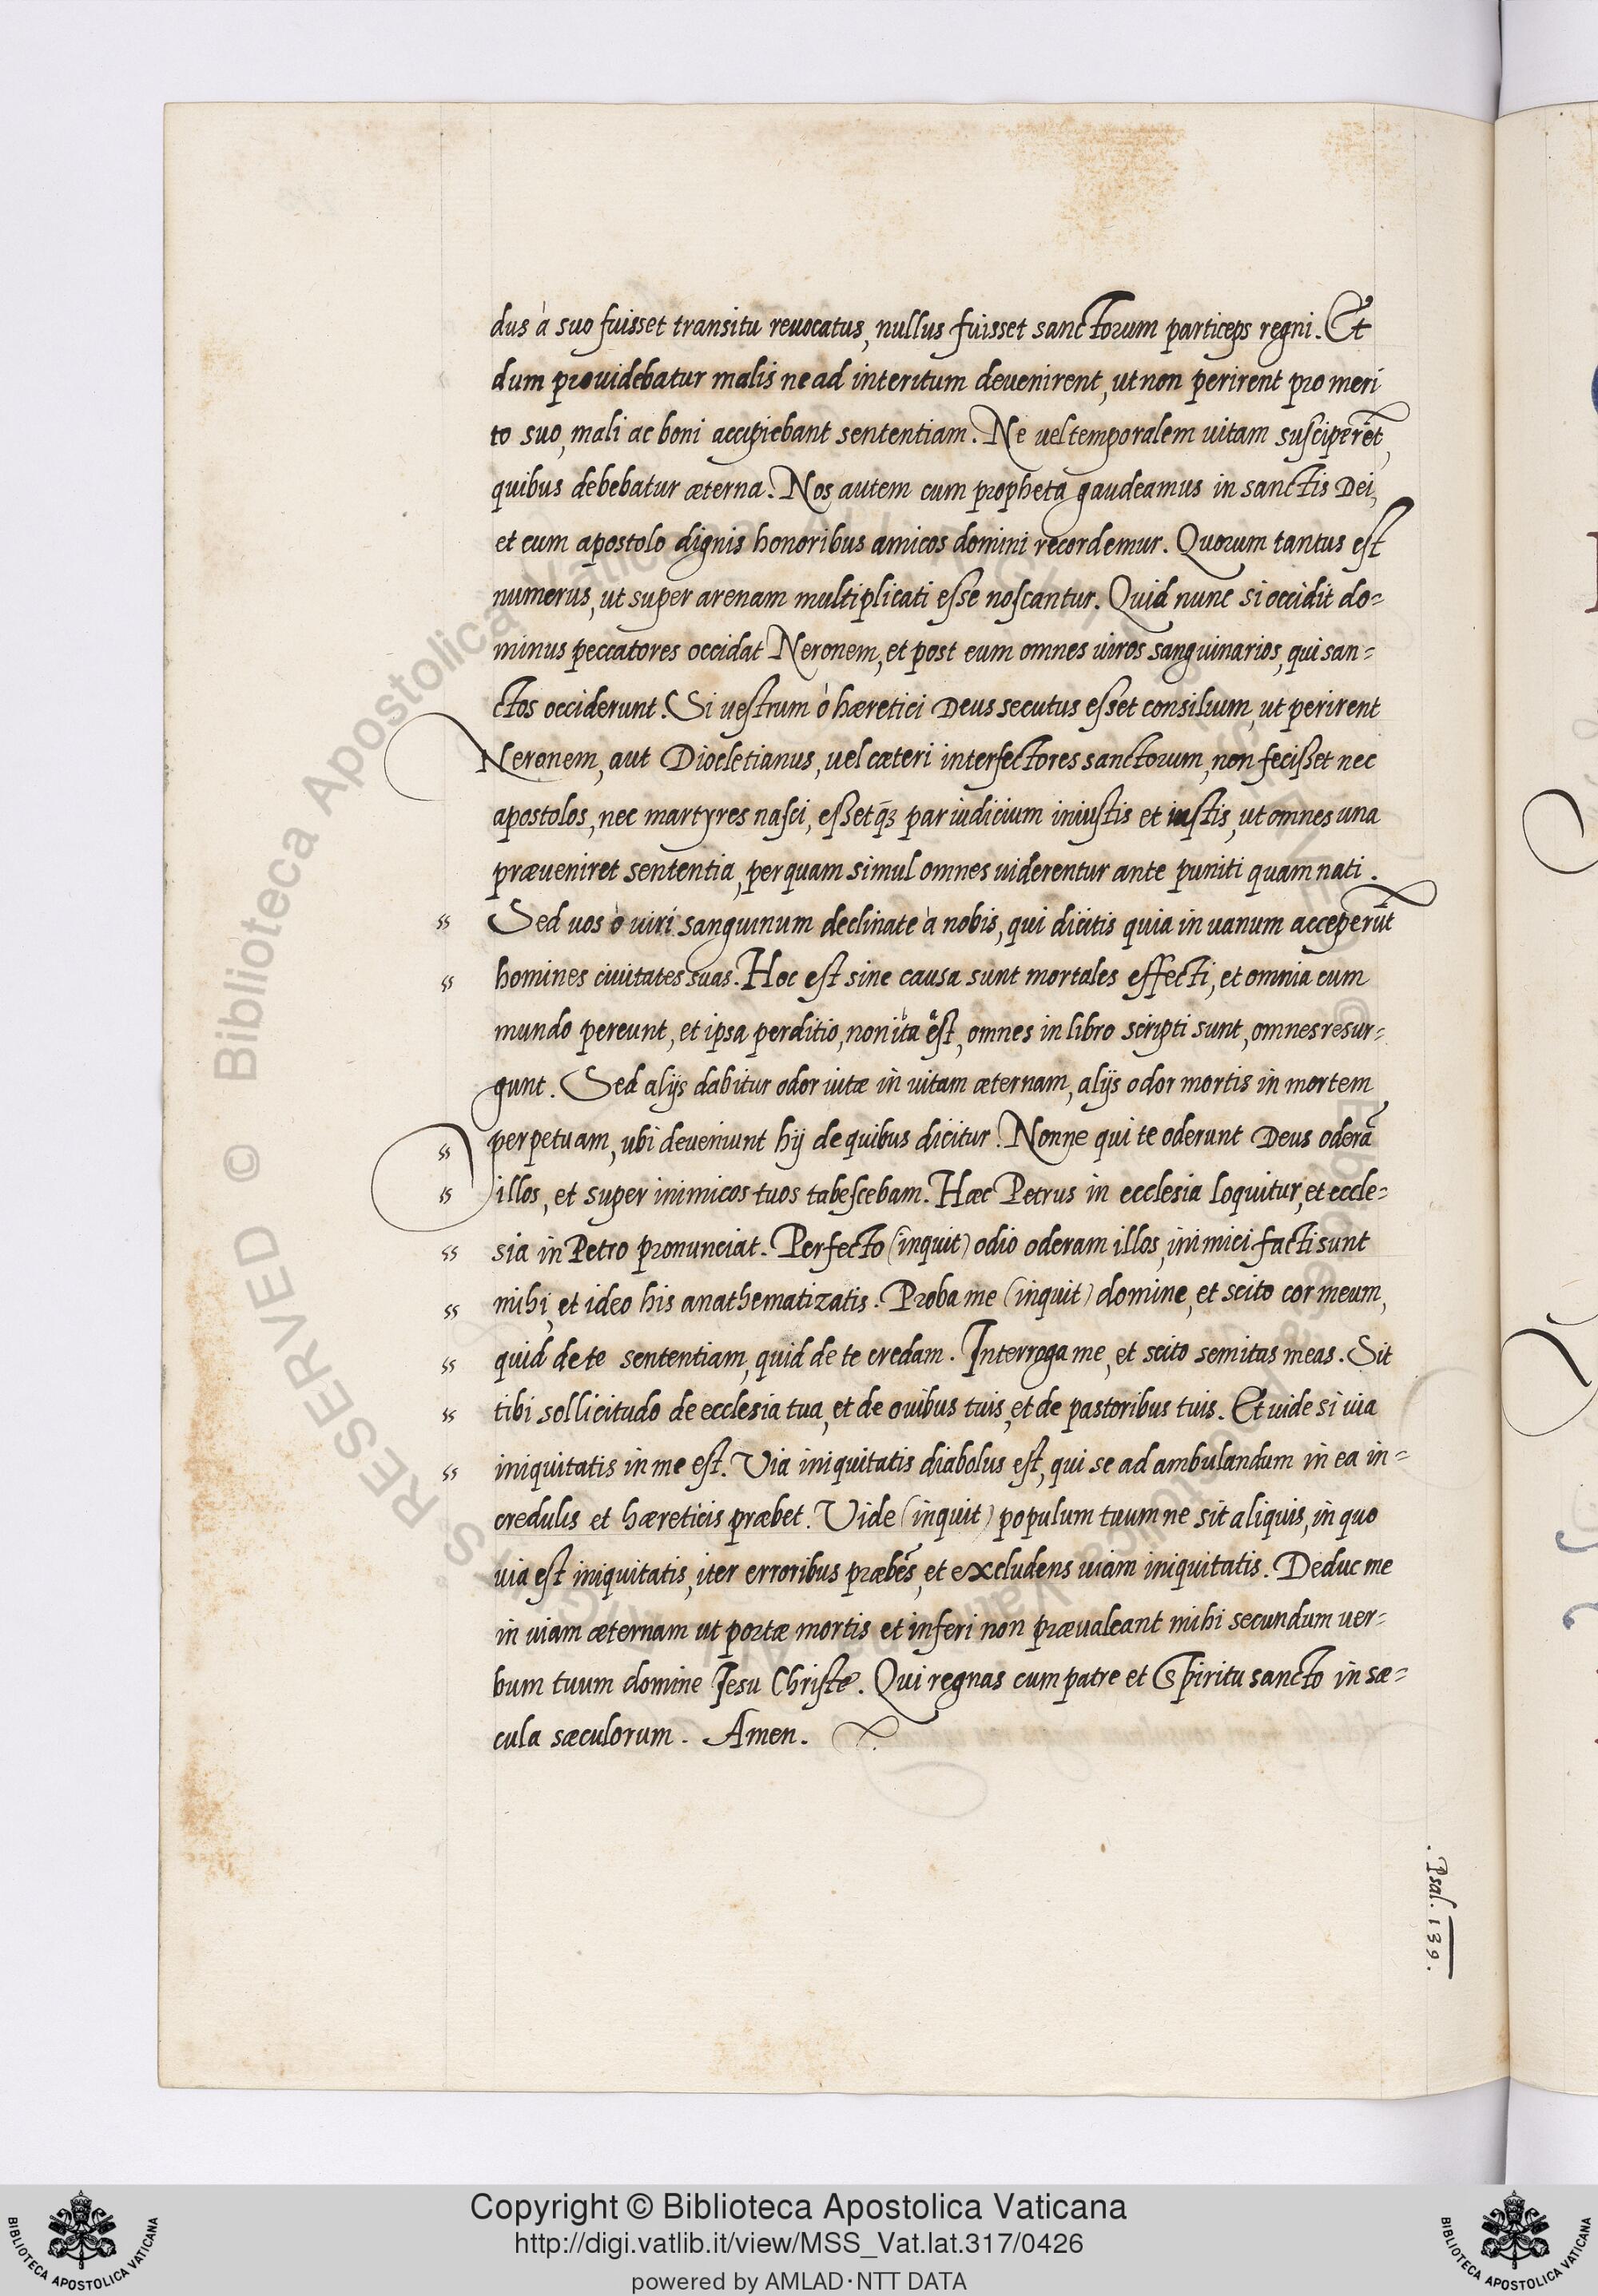 dus à suo fuisset transitu revocatus, nullus fuisset sanctorum particeps regni. Et
dum providebatur malis ne ad interitum devenirent, ut non perirent pro meri
to suo, mali ac boni accipiebant sententiam. Ne vel temporalem vitam susciperēt,
quibus debebatur æterna. Nos autem cum propheta gaudeamus in sanctis Dei,
et cum apostolo dignis honoribus amicos domini recordemur. Quorum tantus est
numerus, ut super arenam multiplicati esse noscantur. Quid nunc si occidit do=
minus peccatores occidat Neronem, et post eum omnes viros sanguinarios, qui san=
ctos occiderunt. Si vestrum ò hæretici Deus secutus esset consilium, ut perirent
Neronem, aut Diocletianus, vel cæteri interfectores sanctorum, non fecisset nec
apostolos, nec martyres nasci, essetq3 par iudicium iniustis et iustis, ut omnes una
præveniret sententia, per quam simul omnes viderentur ante puniti quam nati.
Sed vos ò viri sanguinum declinate à nobis, qui dicitis quia in vanum acceperūt
homines civitates suas. Hoc est sine causa sunt mortales effecti, et omnia cum
mundo pereunt, et ipsa perditio, non ita est, omnes in libro scripti sunt, omnes resur=
gunt. Sed alijs dabitur odor vitæ in vitam æternam, alijs odor mortis in mortem
perpetuam, ubi deveniunt hij de quibus dicitur. Nonne qui te oderunt Deus oderā
illos, et super inimicos tuos tabescebam. Hæc Petrus in ecclesia loquitur, et eccle=
sia in Petro pronunciat. Perfecto (inquit) odio oderam illos, inimici facti sunt
mihi, et ideo his anathematizatis. Proba me (inquit) domine, et scito cor meum,
quid de te sententiam, quid de te credam. Interroga me, et scito semitas meas. Sit
tibi sollicitudo de ecclesia tua, et de ovibus tuis, et de pastoribus tuis. Et vide si via
iniquitatis in me est. Via iniquitatis diabolus est, qui se ad ambulandum in ea in=
credulis et hæreticis præbet. Vide (inquit) populum tuum ne sit aliquis, in quo
via est iniquitatis, iter erroribus præbēs, et excludens viam iniquitatis. Deduc me
in viam æternam ut portæ mortis et inferi non prævaleant mihi secundum ver=
bum tuum domine Jesu Christe. Qui regnas cum patre et Spiritu sancto in sæ=
cula sæculorum. Amen.
. Psal. 139.
Copyright © Biblioteca Apostolica Vaticana
http://digi.vatlib.it/view/MSS_Vat.lat.317/0426
powered by AMLAD·NTT DATA
BIBLIOTECA APOSTOLICA VATICANA
BIBLIOTECA APOSTOLICA VATICANA